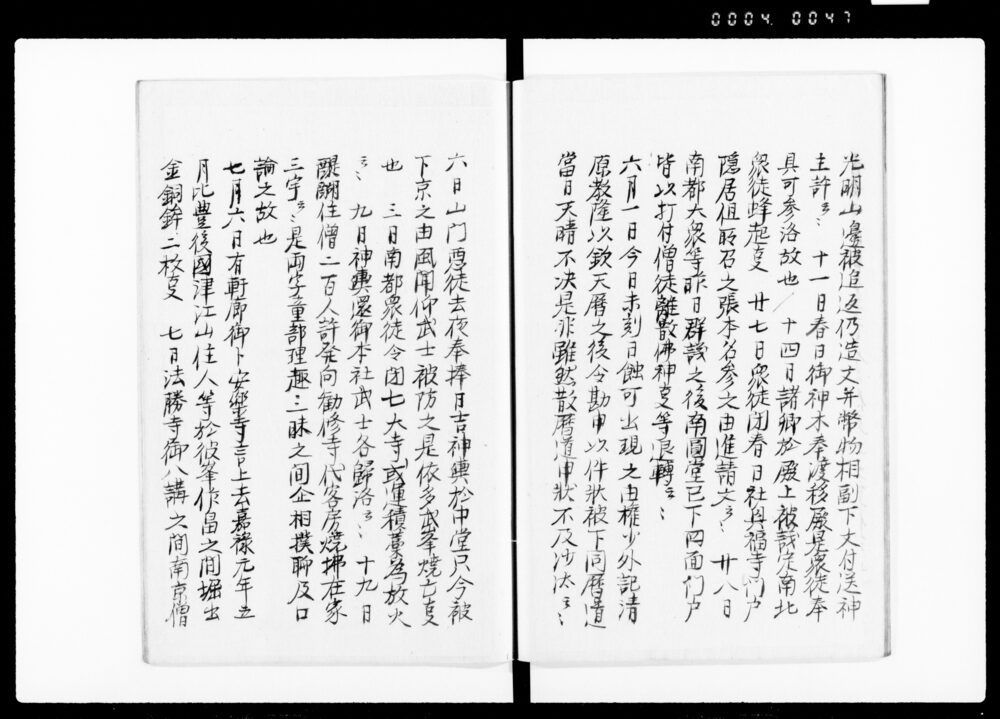 0004 0047
光明山邊被追返仍造文并幣物相副下文付送神
主許云々 十一日春日御神木奉渡移殿是衆徒奉
具可参洛故也 十四日諸卿於殿上被議定南北
衆徒蜂起事 廿七日衆徒閉春日社興福寺門戸
隠居但所召之張本名参之由進請文云々 廿八日
南都大衆等昨日群議之後南圓堂已下四面門戸
皆以打付僧徒離散佛神事等退轉云々
六月一日今日未刻日蝕可出現之由権少外記清
原教隆以欽天暦之後令勘申以件状被下同暦道
當日天晴不決是非雖然散暦道申状不及沙汰云々
六日山門悪徒去夜奉捧日吉神輿於中堂戸今被
下京之由風聞仰武士被防之是依多武峯焼亡事
也 三日南都衆徒令閉七大寺或運積藁為放火
云々 九日神輿還御本社武士各歸洛云々 十九日
醍醐住僧二百人許発向勧修寺代客房焼拂在家
三宇云々是両寺童部理趣三昧之間企相撲聊及口
論之故也
七月六日有軒廊御卜安楽寺言上去嘉禄元年五
月比豊後國津江山住人等於彼峯作畠之間掘出
金銅鉾二枚事 七日法勝寺御八講之間南京僧